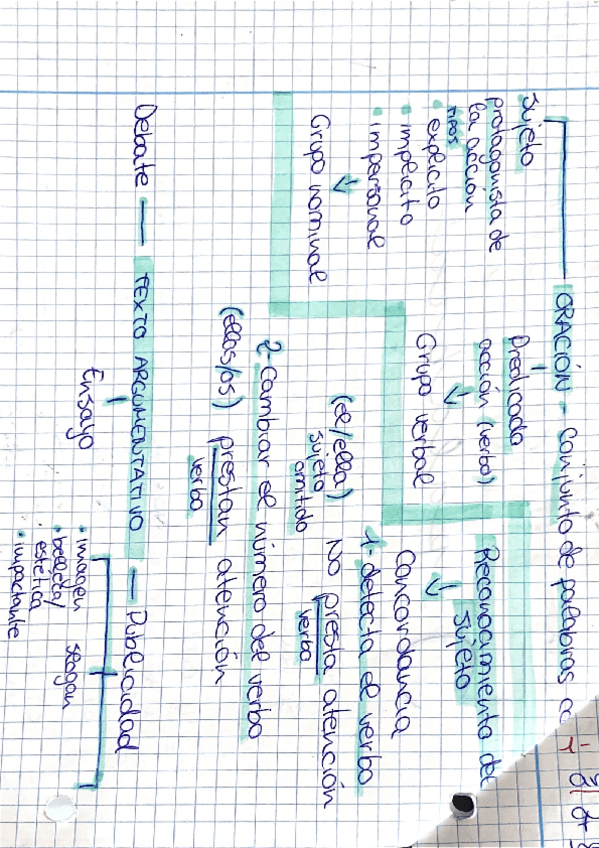 ORACIÓN - Conjunto de palabras
Sujeto
protagonista de
la acción
TIPOS
• explícito
• implícito
• impersonal
Grupo nominal
Predicado
acción (verbo)
Grupo verbal
Reconocimiento del
Sujeto
Concordancia
1- detecta el verbo
(él/ella) No presta atención
sujeto omitido
verbo
2- Cambiar el número del verbo
(ellas/os) prestan atención
verbo
Debate — TEXTO ARGUMENTATIVO — Publicidad
Ensayo
• imagen
• belleza/
estética
• impactante
slogan